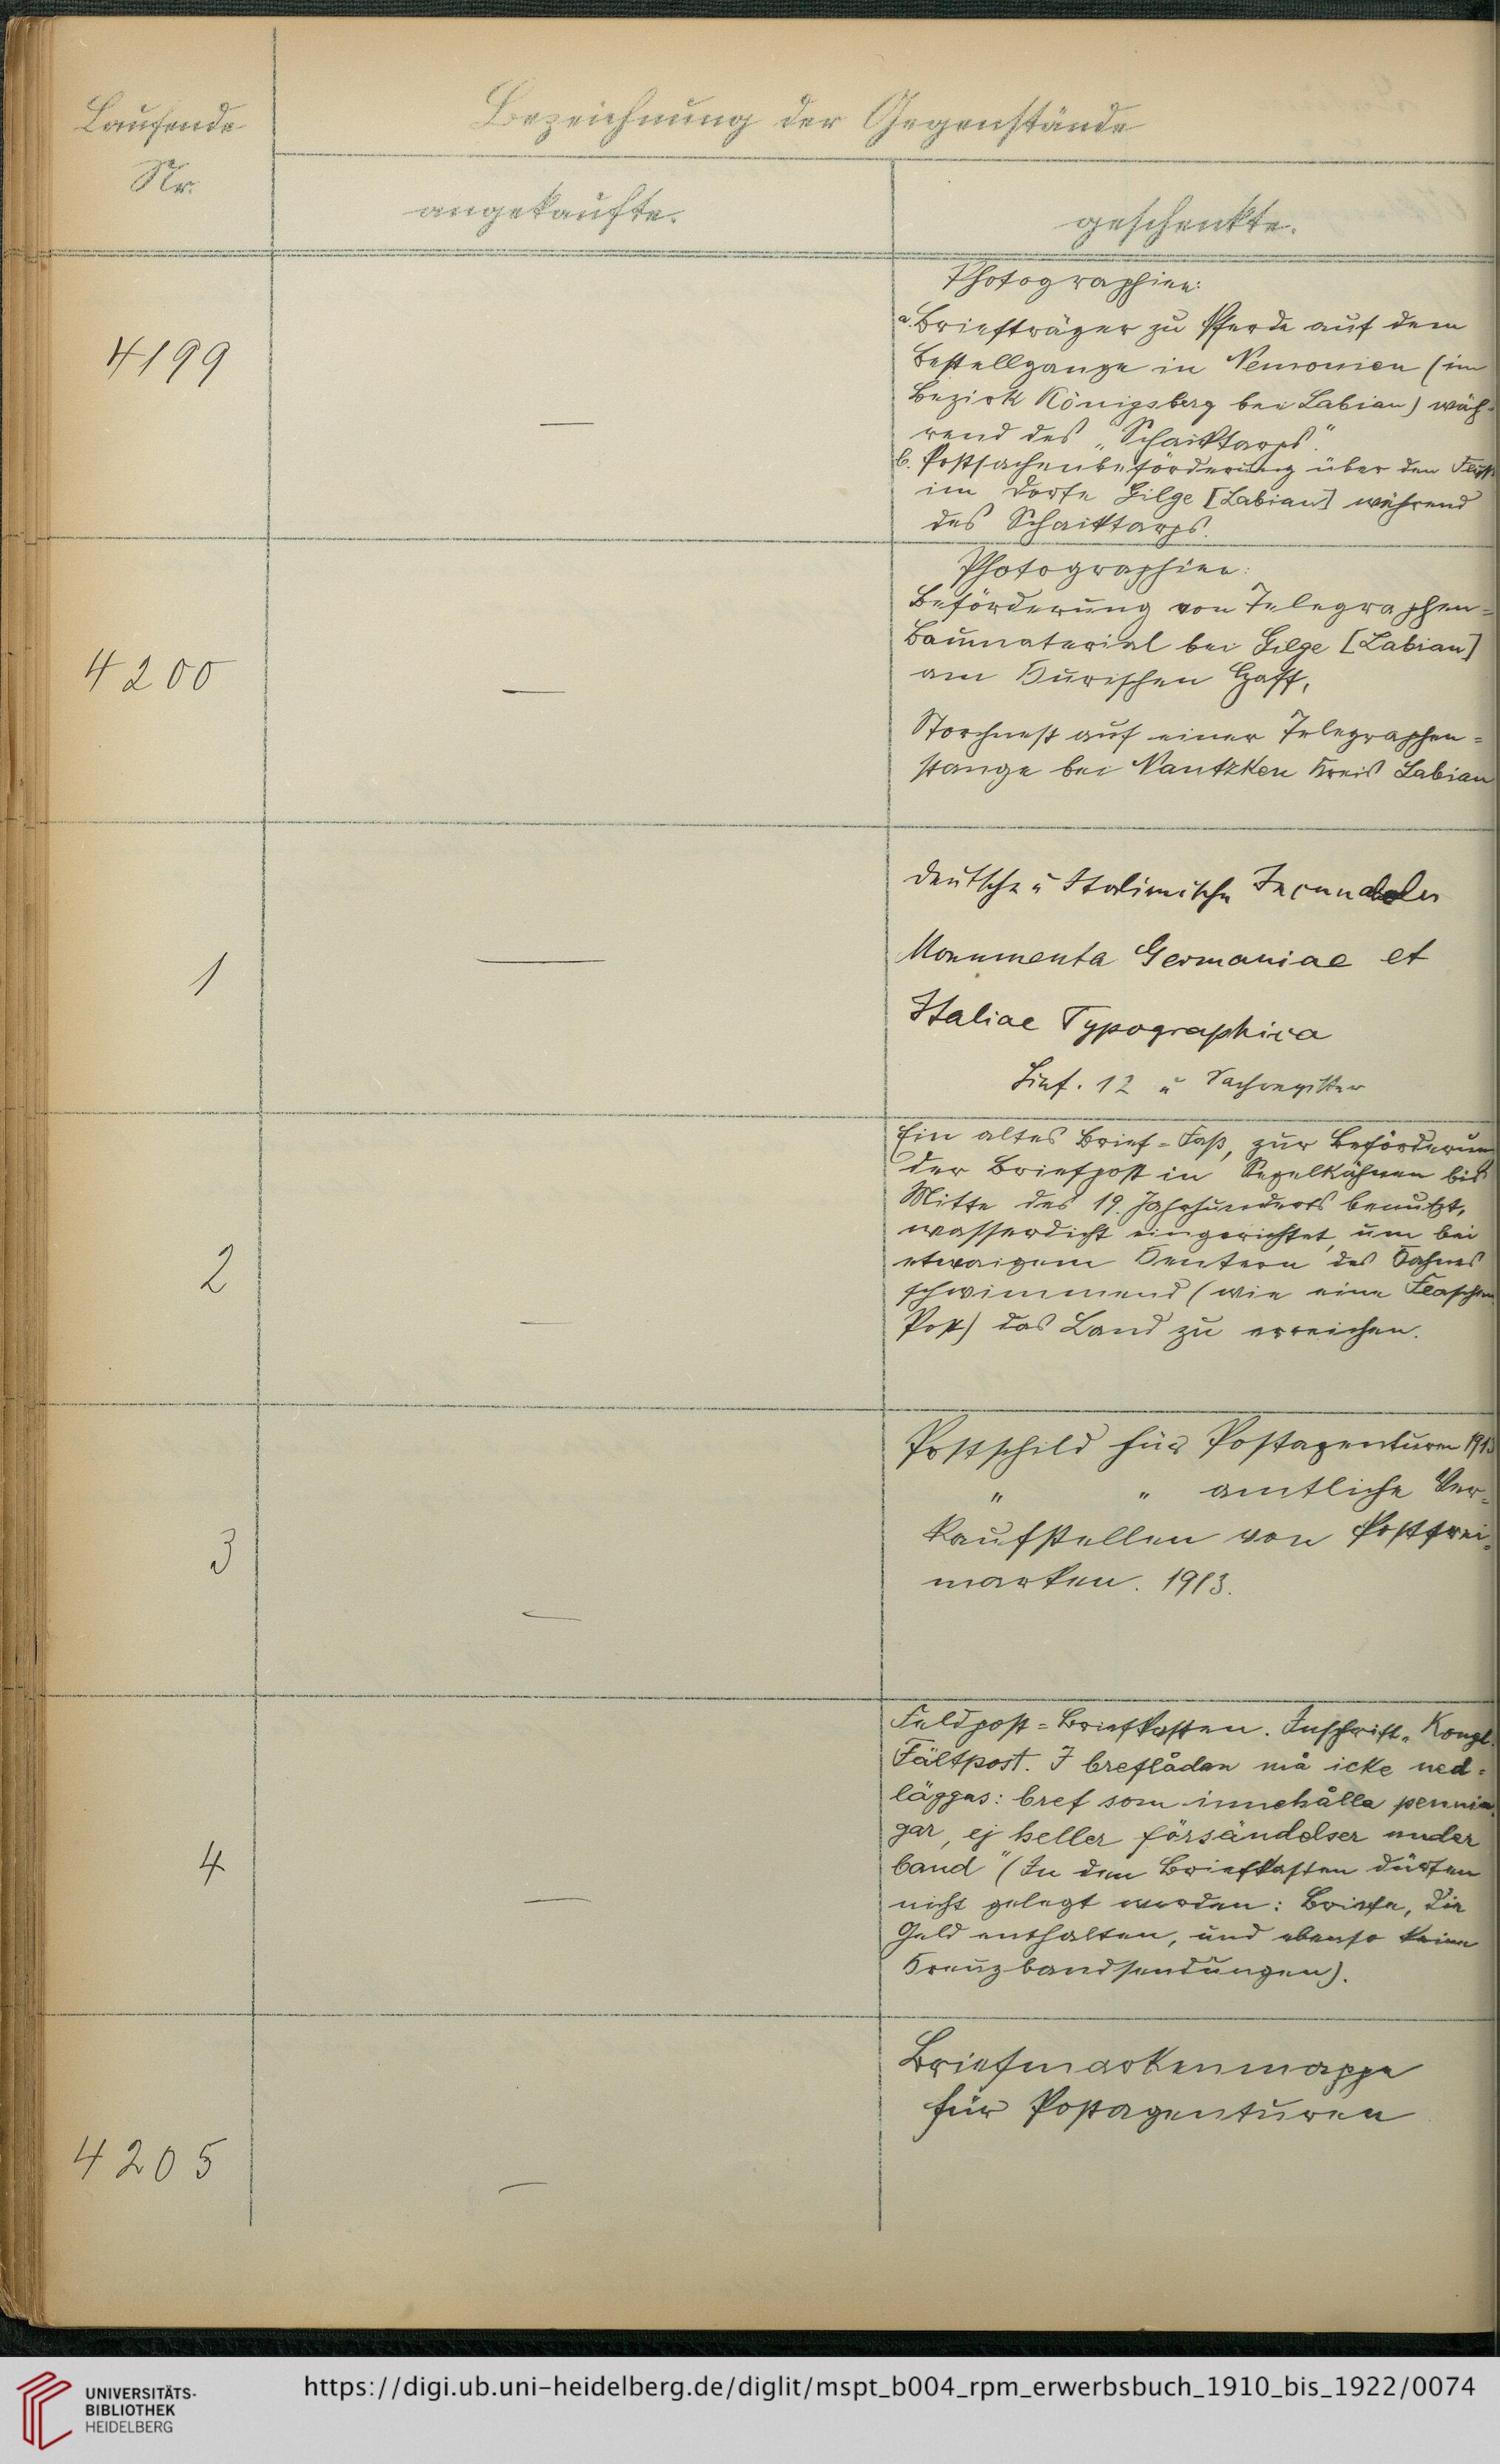 Laufende
Nr.
Bezeichnung der Gegenstände
angekaufte.
geschenkte.
4199
—
Photographien:
a. Briefträger zu Pferde auf dem
Bestellgange in Nemonien (im
Bezirk Königsberg bei Labiau) wäh-
rend des „Schaiktarps".
b. Postsachenbeförderung über den
im Dorfe Gilge [Labiau] während
des Schaiktarps.
4200
—
Photographien:
Beförderung von Telegraphen=
Baumaterial bei Gilge [Labiau]
am Kurischen Haff,
Storchnest auf einer Telegraphen=
stange bei Nautzken Kreis Labiau
1
—
Deutsche u Italienische Incunabeln
Monumenta Germaniae et
Italiae Typographica
Lief. 12 u Sachregister
2
—
Ein altes Brief=Faß, zur Beförderun
der Briefpost in Segelkähnen bis
Mitte des 19. Jahrhunderts benutzt,
wasserdicht eingerichtet, um bei
etwaigem Kentern des Kahnes
schwimmend (wie eine Flaschen
Post) das Land zu erreichen.
3
—
Postschild für Postagenturen 1913
" " amtliche Ver=
kaufstellen von Postfrei=
marken. 1913.
4
—
Feldpost=Briefkasten. Inschrift „Kongl.
Fältpost. I breflådan må icke ned=
läggas: bref som innehålla pennin
gar, ej heller försändelser under
band" (In den Briefkasten dürfen
nicht gelegt werden: Briefe, die
Geld enthalten, und ebenso keine
Kreuzbandsendungen).
4205
—
Briefmarkenmappe
für Postagenturen
UNIVERSITÄTS-
BIBLIOTHEK
HEIDELBERG
https://digi.ub.uni-heidelberg.de/diglit/mspt_b004_rpm_erwerbsbuch_1910_bis_1922/0074